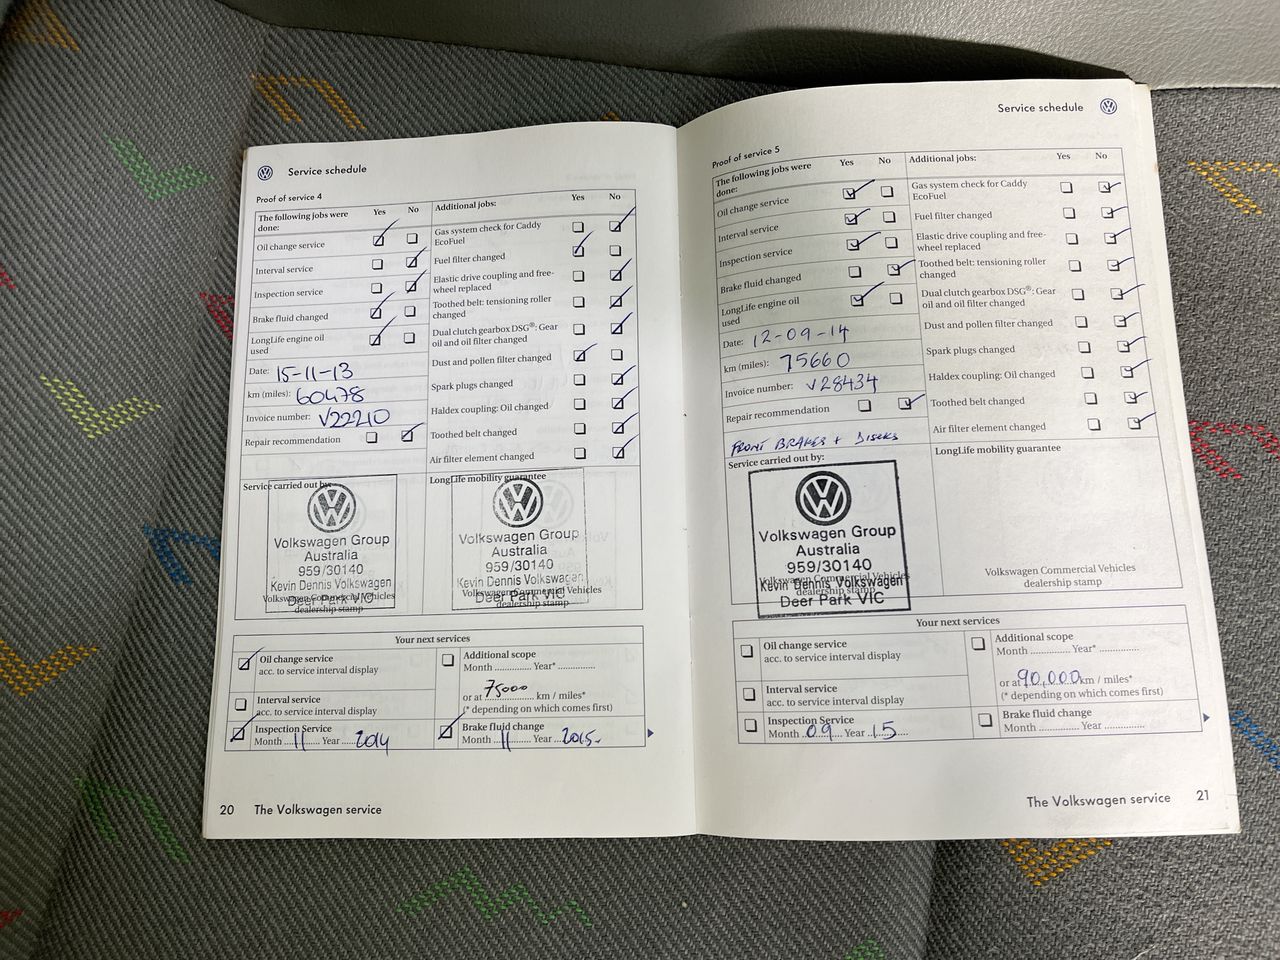 Service schedule
Proof of service 4
The following jobs were done: Yes No
Oil change service
Interval service
Inspection service
Brake fluid changed
LongLife engine oil used
Date: 15-11-13
km (miles): 60478
Invoice number: V22210
Repair recommendation
Additional jobs: Yes No
Gas system check for Caddy EcoFuel
Fuel filter changed
Elastic drive coupling and free-wheel replaced
Toothed belt: tensioning roller changed
Dual clutch gearbox DSG®: Gear oil and oil filter changed
Dust and pollen filter changed
Spark plugs changed
Haldex coupling: Oil changed
Toothed belt changed
Air filter element changed
Service carried out by:
Volkswagen Group
Australia
959/30140
Kevin Dennis Volkswagen
Deer Park VIC
Volkswagen Commercial Vehicles
dealership stamp
LongLife mobility guarantee
Volkswagen Group
Australia
959/30140
Kevin Dennis Volkswagen
Deer Park VIC
Volkswagen Commercial Vehicles
dealership stamp
Your next services
Oil change service
acc. to service interval display
Interval service
acc. to service interval display
Inspection Service
Month 11 Year 2014
Additional scope
Month .............. Year* ..............
or at 75000 km / miles*
(* depending on which comes first)
Brake fluid change
Month 11 Year 2015
20 The Volkswagen service
Service schedule
Proof of service 5
The following jobs were done: Yes No
Oil change service
Interval service
Inspection service
Brake fluid changed
LongLife engine oil used
Date: 12-09-14
km (miles): 75660
Invoice number: V28434
Repair recommendation
FRONT BRAKES + DISCKS
Additional jobs: Yes No
Gas system check for Caddy EcoFuel
Fuel filter changed
Elastic drive coupling and free-wheel replaced
Toothed belt: tensioning roller changed
Dual clutch gearbox DSG®: Gear oil and oil filter changed
Dust and pollen filter changed
Spark plugs changed
Haldex coupling: Oil changed
Toothed belt changed
Air filter element changed
Service carried out by:
Volkswagen Group
Australia
959/30140
Volkswagen Commercial Vehicles
Kevin Dennis Volkswagen
dealership stamp
Deer Park VIC
LongLife mobility guarantee
Volkswagen Commercial Vehicles
dealership stamp
Your next services
Oil change service
acc. to service interval display
Interval service
acc. to service interval display
Inspection Service
Month 09 Year 15
Additional scope
Month .............. Year* ..............
or at 90,000 km / miles*
(* depending on which comes first)
Brake fluid change
Month .............. Year ..............
The Volkswagen service 21